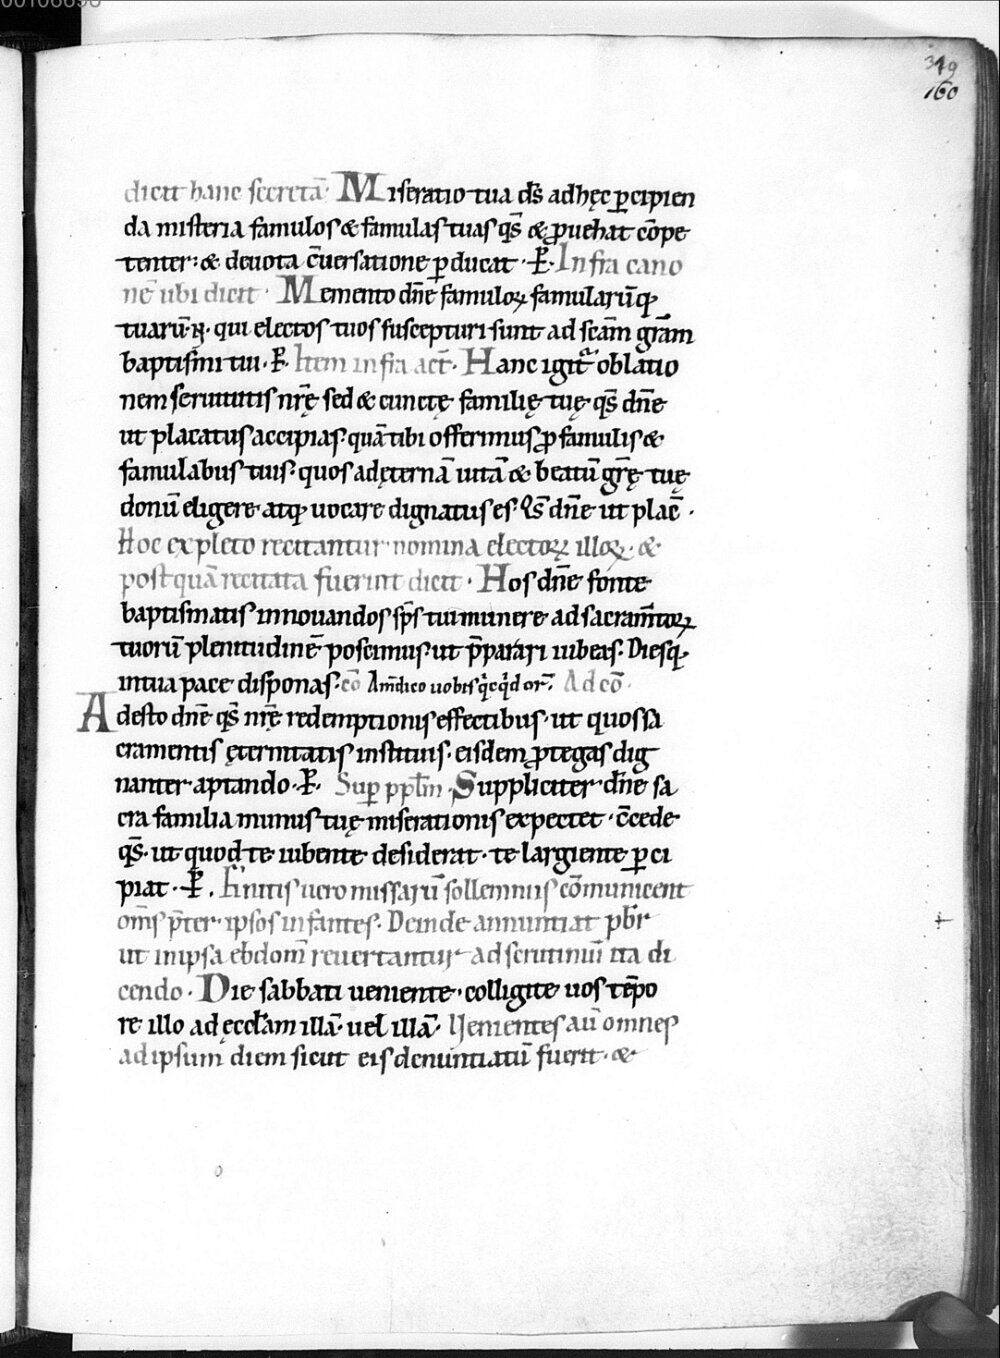 319
160
dicit hanc secretā· Miseratio tua ds̄ ad hęc ꝑcipien
da misteria famulos & famulas tuas qs̄ & ꝓuehat cōpe
tenter· & deuota c̄uersatione ꝑducat · P̄· Infra cano
nē ubi dicit · Memento dn̄e famuloꝝ famularūq;
tuarū N̄· qui electos tuos suscepturi sunt ad scām gr̄am
baptismi tui · P̄· Item infra act̄· Hanc igit̄ oblatio
nem seruitutis nr̄ę sed & cunctę familię tuę qs̄ dn̄e
ut placatus accipias· quā tibi offerimus ꝓ famulis &
famulabus tuis· quos ad ęternā uitā & beatū gr̄ę tuę
donū eligere atq; uocare dignatus es· Qs̄ dn̄e ut plac̄ ·
Hoc expleto recitantur nomina electoꝝ illoꝝ· &
postquā recitata fuerint dicit · Hos dn̄e fonte
baptismatis innouandos sp̄s tui munere ad sacram̄toꝝ
tuorū plenitudinē poscimus ut p̄parari iubeas· Diesq;
in tua pace disponas· cō Am̄ dico uobis qͥcqͥd or̄· Ad cō·
Adesto dn̄e qs̄ nr̄ę redemptionis effectibus· ut quos sa
cramentis ęternitatis instituis· eisdem ꝓtegas dig
nanter aptando · P̄· Suꝑ ppl̄m · Suppliciter dn̄e sa
cra familia munus tuę miserationis expectet · c̄cede
qs̄· ut quod te iubente desiderat · te largiente ꝑci
piat · P̄· Finitis uero missarū sollemniis cōmunicent
om̄s p̄ter ipsos infantes· Deinde annuntiat pb̄r
ut in ipsa ebdom̄ reuertantur ad scrutiniū ita di
cendo · Die sabbati ueniente· colligite uos tēpo
re illo ad ęccl̄am illā· uel illā· Uenientes aū omnes
ad ipsum diem sicut eis denuntiatū fuerit· &